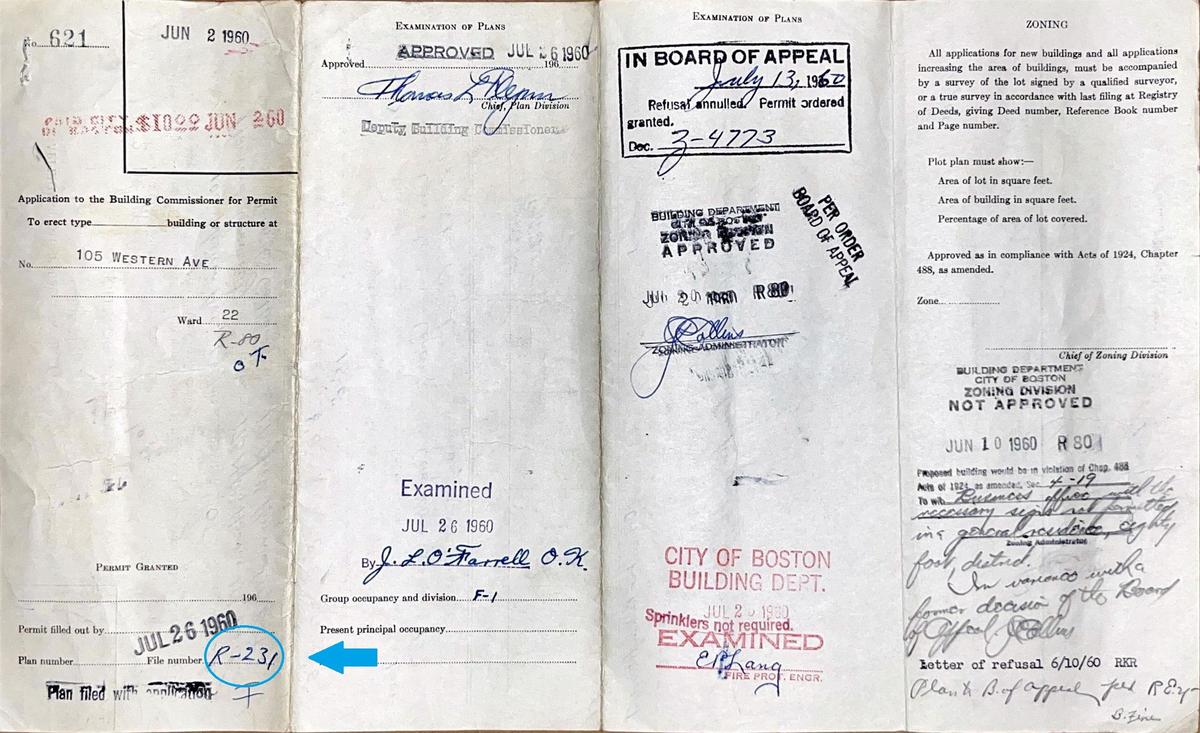 No. 621
JUN 2 1960
$10.00 JUN 2 60
Application to the Building Commissioner for Permit
To erect type building or structure at
No. 105 WESTERN AVE
Ward 22
R-80
PERMIT GRANTED
196
Permit filled out by JUL 26 1960
Plan number File number R-231
Plan filed with application
EXAMINATION OF PLANS
APPROVED JUL 26 1960
Approved 196
Thomas
Chief, Plan Division
Deputy Building Commissioner
Examined
JUL 26 1960
By J. L. O'Farrell O.K.
Group occupancy and division F-1
Present principal occupancy
EXAMINATION OF PLANS
IN BOARD OF APPEAL
July 13, 1960
Refusal annulled. Permit ordered
granted.
Dec. Z-4773
PER ORDER
BOARD OF APPEAL
BUILDING DEPARTMENT
CITY OF BOSTON
ZONING DIVISION
APPROVED
R 80
Collins
ZONING ADMINISTRATOR
CITY OF BOSTON
BUILDING DEPT.
JUL 2 1960
Sprinklers not required.
EXAMINED
Lang
FIRE PROT. ENGR.
ZONING
All applications for new buildings and all applications
increasing the area of buildings, must be accompanied
by a survey of the lot signed by a qualified surveyor,
or a true survey in accordance with last filing at Registry
of Deeds, giving Deed number, Reference Book number
and Page number.
Plot plan must show:—
Area of lot in square feet.
Area of building in square feet.
Percentage of area of lot covered.
Approved as in compliance with Acts of 1924, Chapter
488, as amended.
Zone
Chief of Zoning Division
BUILDING DEPARTMENT
CITY OF BOSTON
ZONING DIVISION
NOT APPROVED
JUN 10 1960 R 80
Proposed building would be in violation of Chap. 488
Acts of 1924, as amended, Sec. 4-19
To wit: Business office with the
necessary signs not permitted
in a general residence, eighty
Zoning Administrator
foot, district.
In variance with a
former decision of the Board
of Appeal Collins
Letter of refusal 6/10/60 RKR
Plan & B. of appeal per
B. Fine